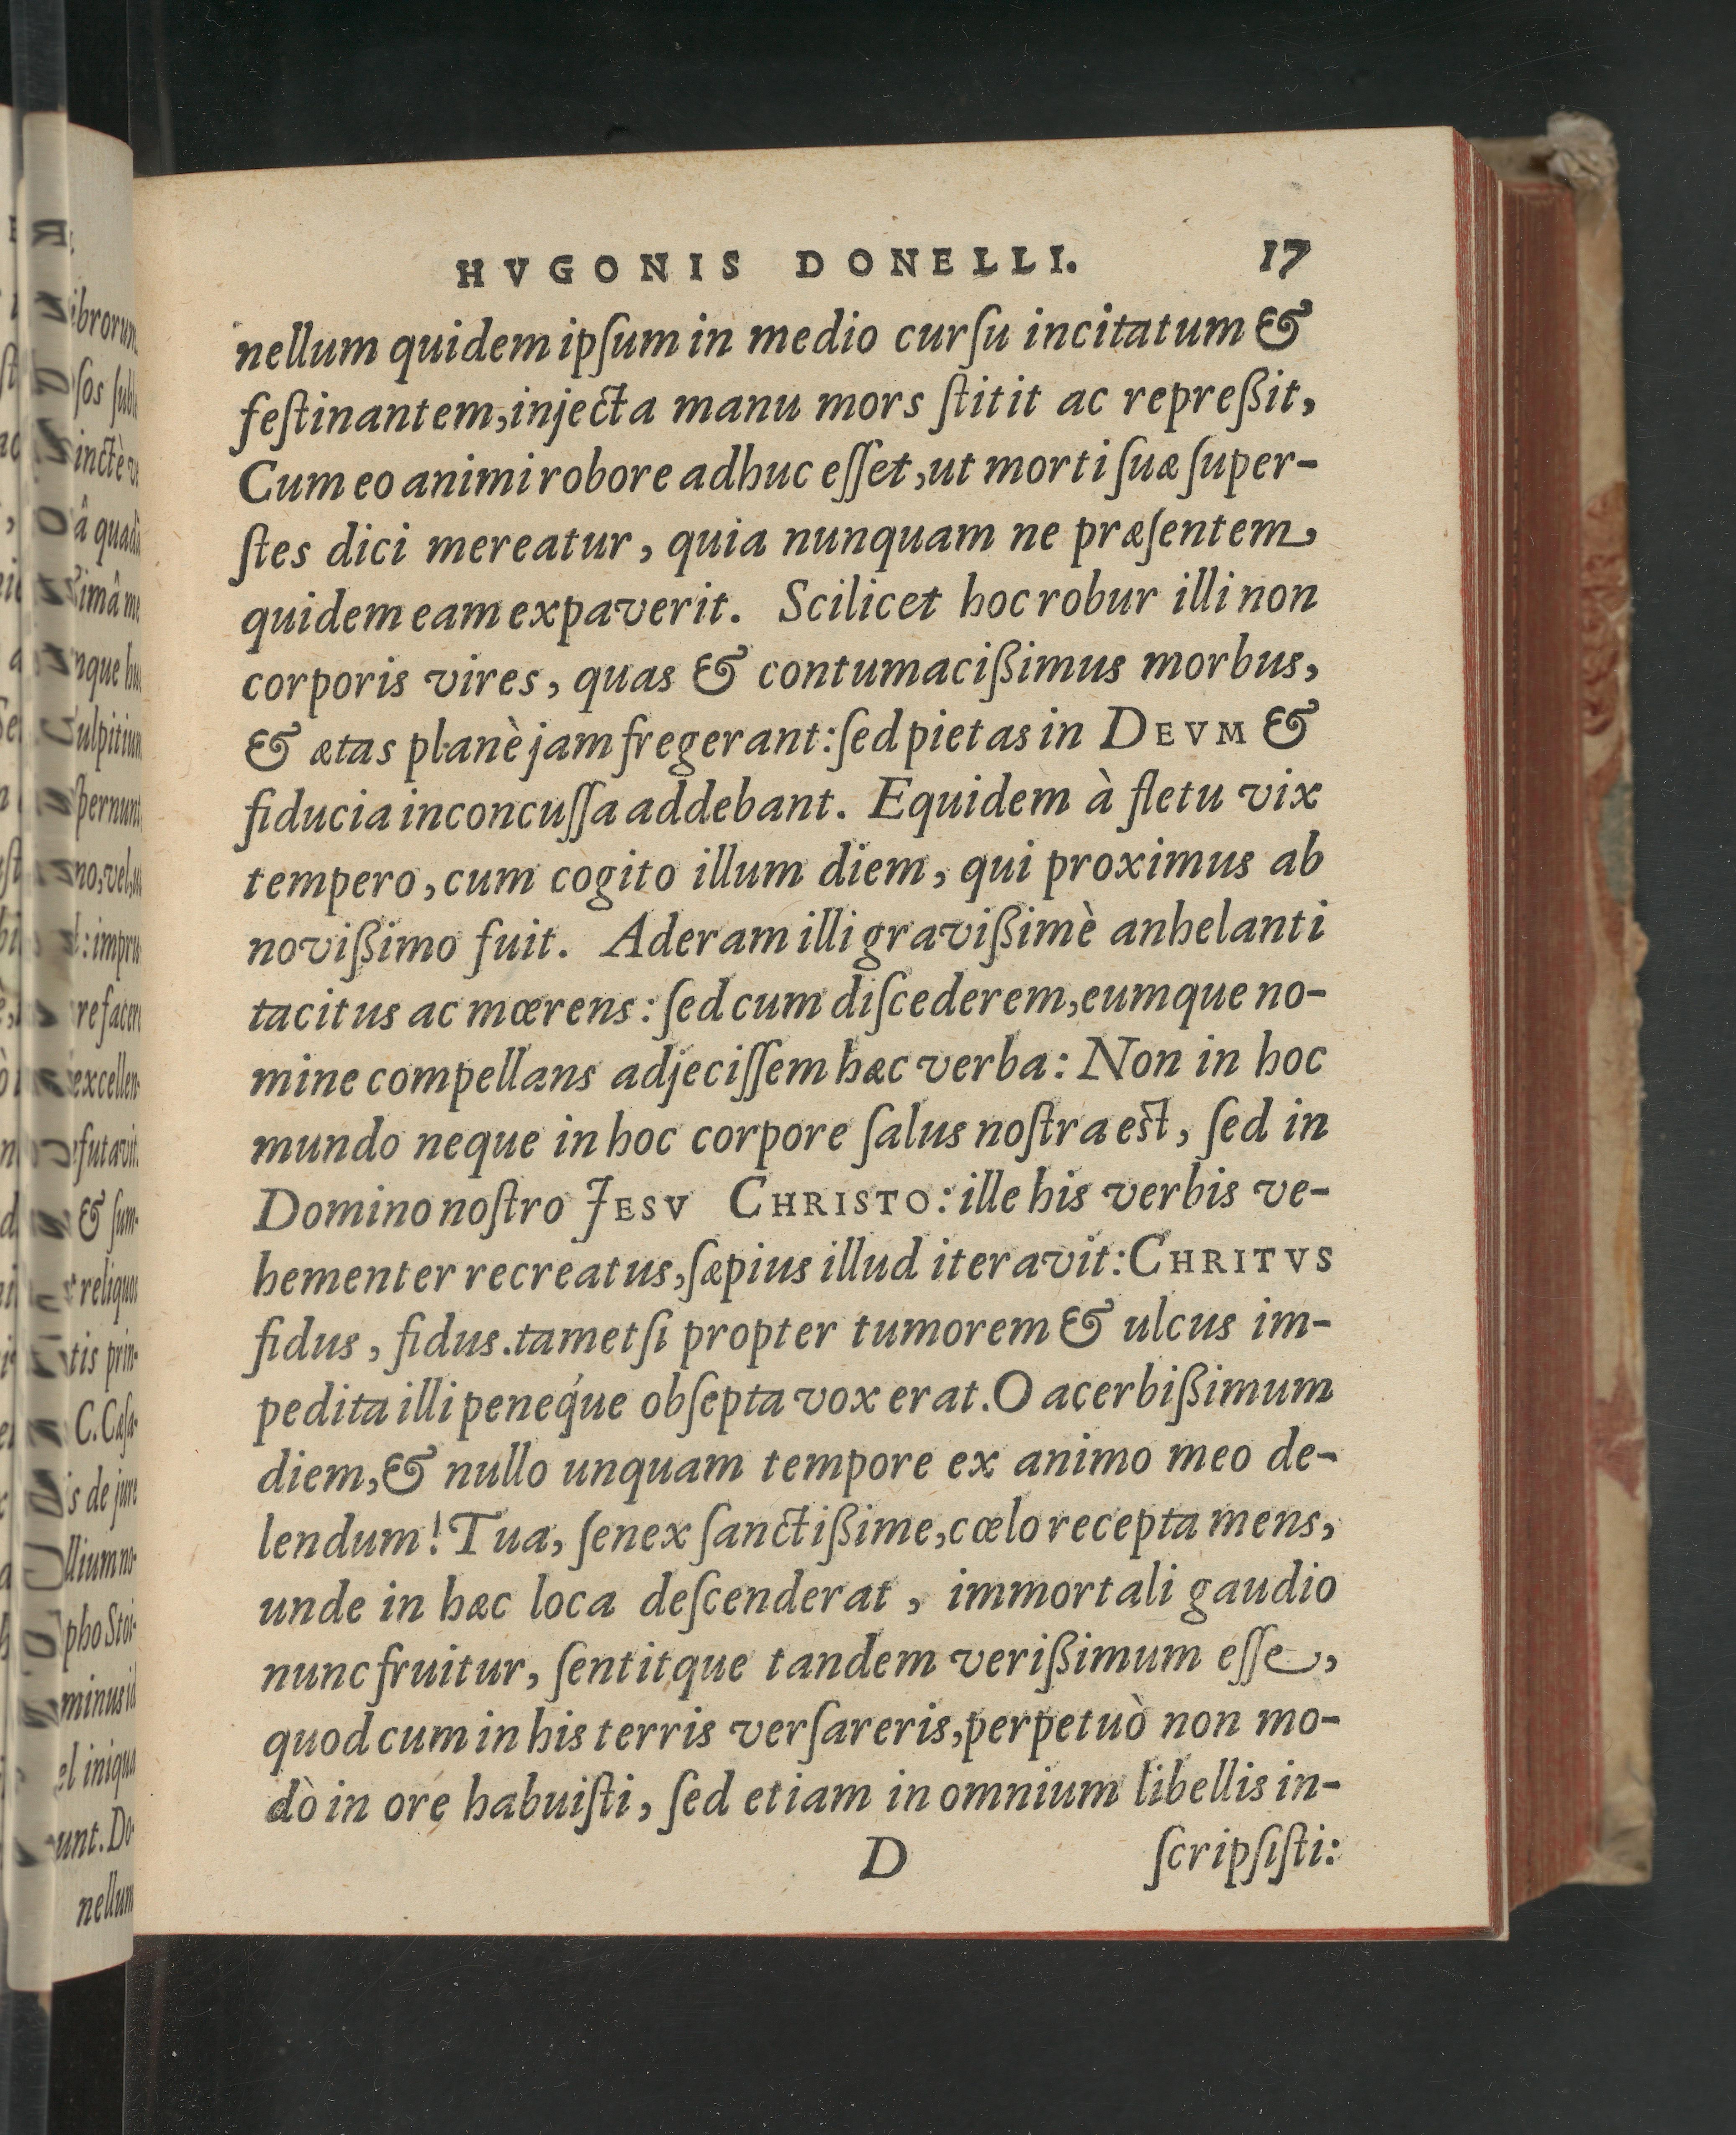 HVGONIS DONELLI. 17
nellum quidem ipſum in medio curſu incitatum &
feſtinantem, injecta manu mors ſtitit ac repreßit,
Cum eo animi robore adhuc eſſet, ut morti ſuæ ſuper-
ſtes dici mereatur, quia nunquam ne præſentem,
quidem eam expaverit. Scilicet hoc robur illi non
corporis vires, quas & contumacißimus morbus,
& ætas planè jam fregerant: ſed pietas in DEVM &
fiducia inconcuſſa addebant. Equidem à fletu vix
tempero, cum cogito illum diem, qui proximus ab
novißimo fuit. Aderam illi gravißimè anhelanti
tacitus ac mœrens: ſed cum diſcederem, eumque no-
mine compellans adjeciſſem hæc verba: Non in hoc
mundo neque in hoc corpore ſalus noſtra est, ſed in
Domino noſtro JESV CHRISTO: ille his verbis ve-
hementer recreatus, ſæpius illud iteravit: CHRITVS
fidus, fidus. tametſi propter tumorem & ulcus im-
pedita illi peneq́ue obſepta vox erat. O acerbißimum
diem, & nullo unquam tempore ex animo meo de-
lendum! Tua, ſenex ſanctißime, cœlo recepta mens,
unde in hæc loca deſcenderat, immortali gaudio
nunc fruitur, ſentitque tandem verißimum eſſe,
quod cum in his terris verſareris, perpetuò non mo-
dò in ore habuiſti, ſed etiam in omnium libellis in-
D ſcripſiſti: